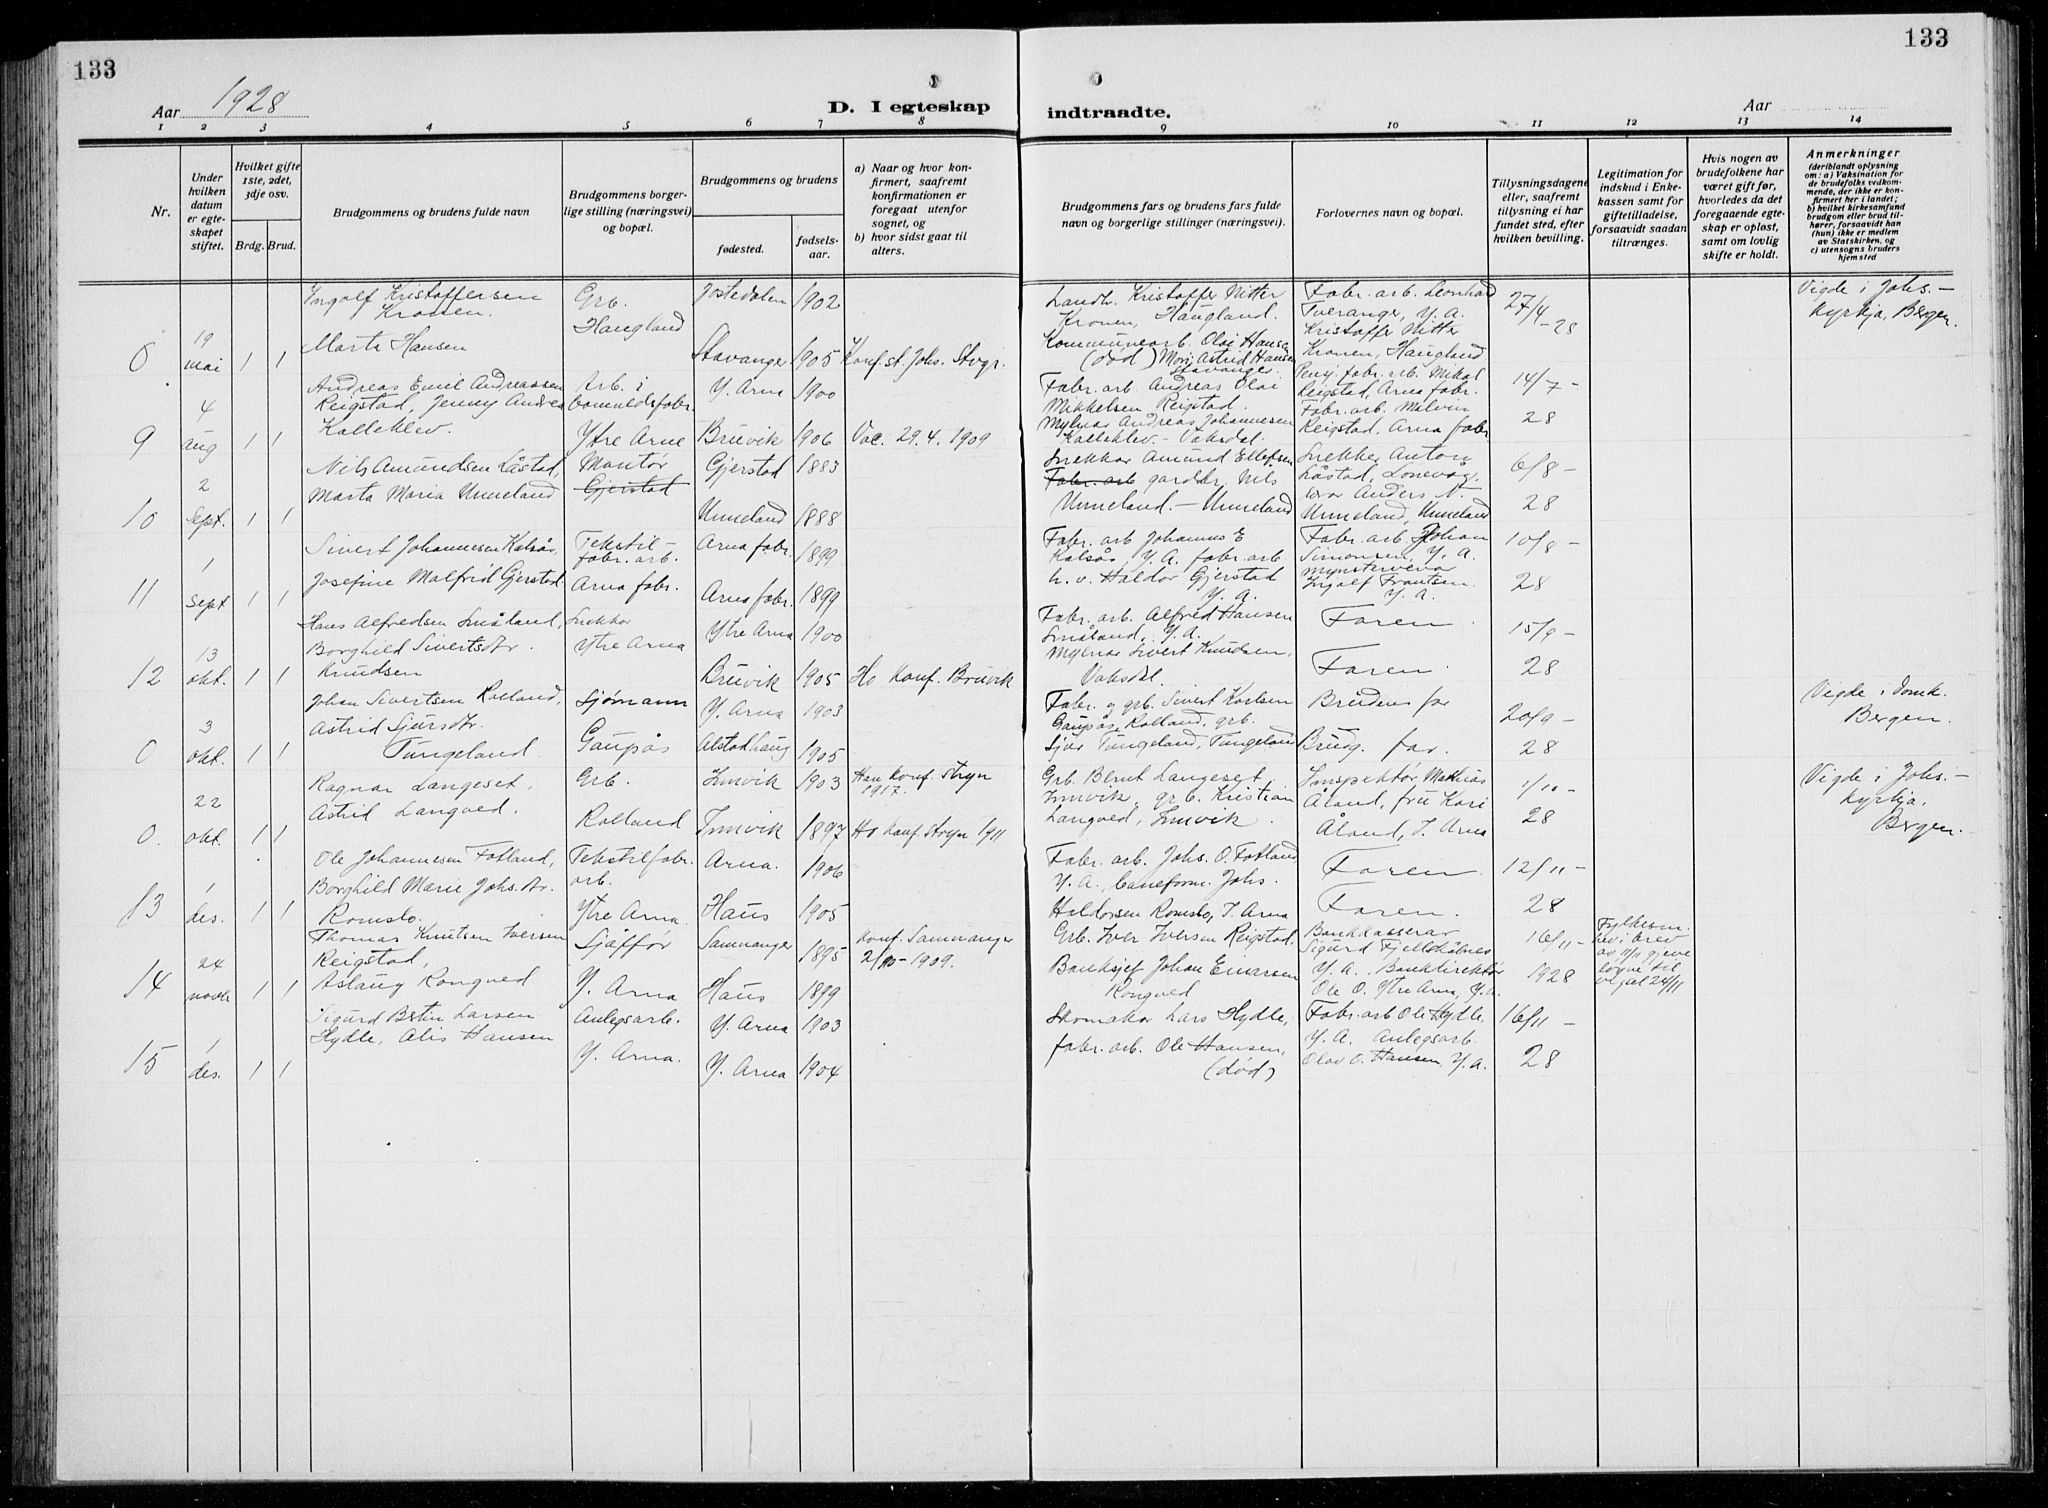 133
133
Aar 1928
D. I egteskap
indtraadte.
Aar
1 2 3 4 5 6 7 8 9 10 11 12 13 14
Nr.
Under hvilken datum er egteskapet stiftet.
Hvilket gifte 1ste, 2det, 3dje osv.
Brdg. Brud.
Brudgommens og brudens fulde navn
Brudgommens borgerlige stilling (næringsvei) og bopæl.
Brudgommens og brudens
fødested.
fødselsaar.
a) Naar og hvor konfirmert, saafremt konfirmationen er foregaat utenfor sognet, og
b) hvor sidst gaat til alters.
Brudgommens fars og brudens fars fulde navn og borgerlige stillinger (næringsvei).
Forlovernes navn og bopæl.
Tillysningsdagene eller, saafremt tillysning ei har fundet sted, efter hvilken bevilling.
Legitimation for indskud i Enkekassen samt for giftetilladelse, forsaavidt saadan tiltrænges.
Hvis nogen av brudefolkene har været gift før, hvorledes da det foregaaende egteskap er opløst, samt om lovlig skifte er holdt.
Anmerkninger
(deriblandt oplysning om: a) Vaksination for de brudefolks vedkommende, der ikke er konfirmert her i landet; b) hvilket kirkesamfund brudgom eller brud tilhører, forsaavidt han (hun) ikke er medlem av Statskirken, og c) utensogns bruders hjemsted
0 19 mai 1 1
Ingolf Kristoffersen Kronen.
Marta Hansen
Grb. Haugland
Jostedalen 1902
Stavanger 1905
Konf. st. Johs. Stvgr.
Landh. Kristoffer Nitter Kronen, Haugland.
Kommunearb. Olai Hansen (död) Mor: Astrid Hansen Stavanger.
Fabr. arb. Leonhard Tveranger, Y. A.
Kristoffer Nitter Kronen, Haugland
27/4 - 28
Vigde i Johs.- kyrkja, Bergen.
9 4 aug 1 1
Andreas Emil Andreassen Reigstad, Jenny Andrea Kalleklev.
Arb. i
Ytre Arne
Y. Arna 1900
Bruvik 1906
Vac. 29.4. 1909
Fabr. arb. Andreas Olai Mikkelsen Reigstad.
Mylnar Andreas Johannesen Kalleklev - Vaksdal.
Pensj. fabr. arb. Mikal Reigstad, Arna fabr.
Fabr. arb. Malvin Reigstad. Arna fabr
14/7 - 28
10 2 Sept. 1 1
Nils Amundsen Låstad,
Marta Maria Unneland
Montør
Gjerstad
Gjerstad 1883
Unneland 1888
Snekkar Amund Ellefsen
Fabr. arb gardbr. Nils Unneland. - Unneland
Snekker Anton Låstad, Lonevåg.
Anders N. Unneland, Unneland
6/8 - 28
11 1 sept 1 1
Sivert Johannesen Kalsås,
Josefine Malfrid Gjerstad.
Tekstil- fabr. arb.
Arna fabr.
Arna fabr. 1899
Arna fabr. 1899
Fabr. arb Johannes E Kalsås, Y. A. fabr. arb. h. v. Haldor Gjerstad Y. A.
Fabr. arb. Johan Simonsen, Y. A.
Mynstervevar Ingolf Frantsen. Y. A.
10/8 - 28
12 13 okt. 1 1
Hans Alfredsen Småland,
Borghild Sivertsdtr. Knudsen
Snekkar
Ytre Arna
Ytre Arna 1900
Bruvik 1905
Ho konf. Bruvik
Fabr. arb. Alfred Hansen Småland, Y. A.
Mylnar Sivert Knudsen, Vaksdal.
Faren
Faren.
15/9 - 28
0 3 okt. 1 1
Johan Sivertsen Rolland,
Astrid Sjursdtr. Tungeland.
Sjømann
Gaupås
Y. Arna 1903
Alstadhaug 1905
Fabr. og grb. Sivert Karlsen Gaupås, Rolland, grb.
Sjur Tungeland, Tungeland
Brudens far
Brudg. far.
20/9 - 28
Vigde i domk. Bergen.
0. 22 okt. 1 1
Ragnar Langeset,
Astrid Langved.
Grb.
Rolland
Innvik 1903
Innvik 1897
Han konf. Stryn 1917.
Ho konf. Stryn 1911
Grb. Bernt Langeset, Innvik, grb. Kristian Langved, Innvik.
Inspektør Mathias Åland, fru Kari Åland, I. Arna
1/10 - 28
Vigde i Johs.- kyrkja, Bergen.
13 1 des. 1 1
Ole Johannesen Fotland,
Borghild Marie Johs. dtr. Romslo.
Tekstilfabr. arb.
Ytre Arna.
Arna. 1906
Haus 1905
Fabr. arb. Johs. O. Fotland Y. A., Johs. Haldorsen Romslo, I. Arna
Faren
Faren.
12/11 - 28
14 24 novbr 1 1
Thomas Knutsen Iversen Reigstad,
Aslaug Rongved
Sjåffør
Y. Arna
Samnanger 1895
Haus 1899
konf. Samnanger 2/10 - 1909.
Grb. Iver Iversen Reigstad.
Banksjef Johan Einarsen Rongved
Bankkasserar Sigurd Fjellskålnes Y. A. Bankdirektør Ole O. Ytre Arna, Y. A.
16/11 - 1928
i brev av 1/11 gjeve løyve til vigsel 24/11
15 1 des. 1 1
Sigurd Bertin Larsen Hydle, Alis Hansen
Anlegsarb.
Y. Arna.
Y. Arna 1903
Y. Arna 1904
Skomakar Lars Hydle, fabr. arb. Ole Hansen, (död)
Fabr. arb Ole Hydle, Y. A. Anlegsarb. Olav O. Hansen, Y. A.
16/11 - 28